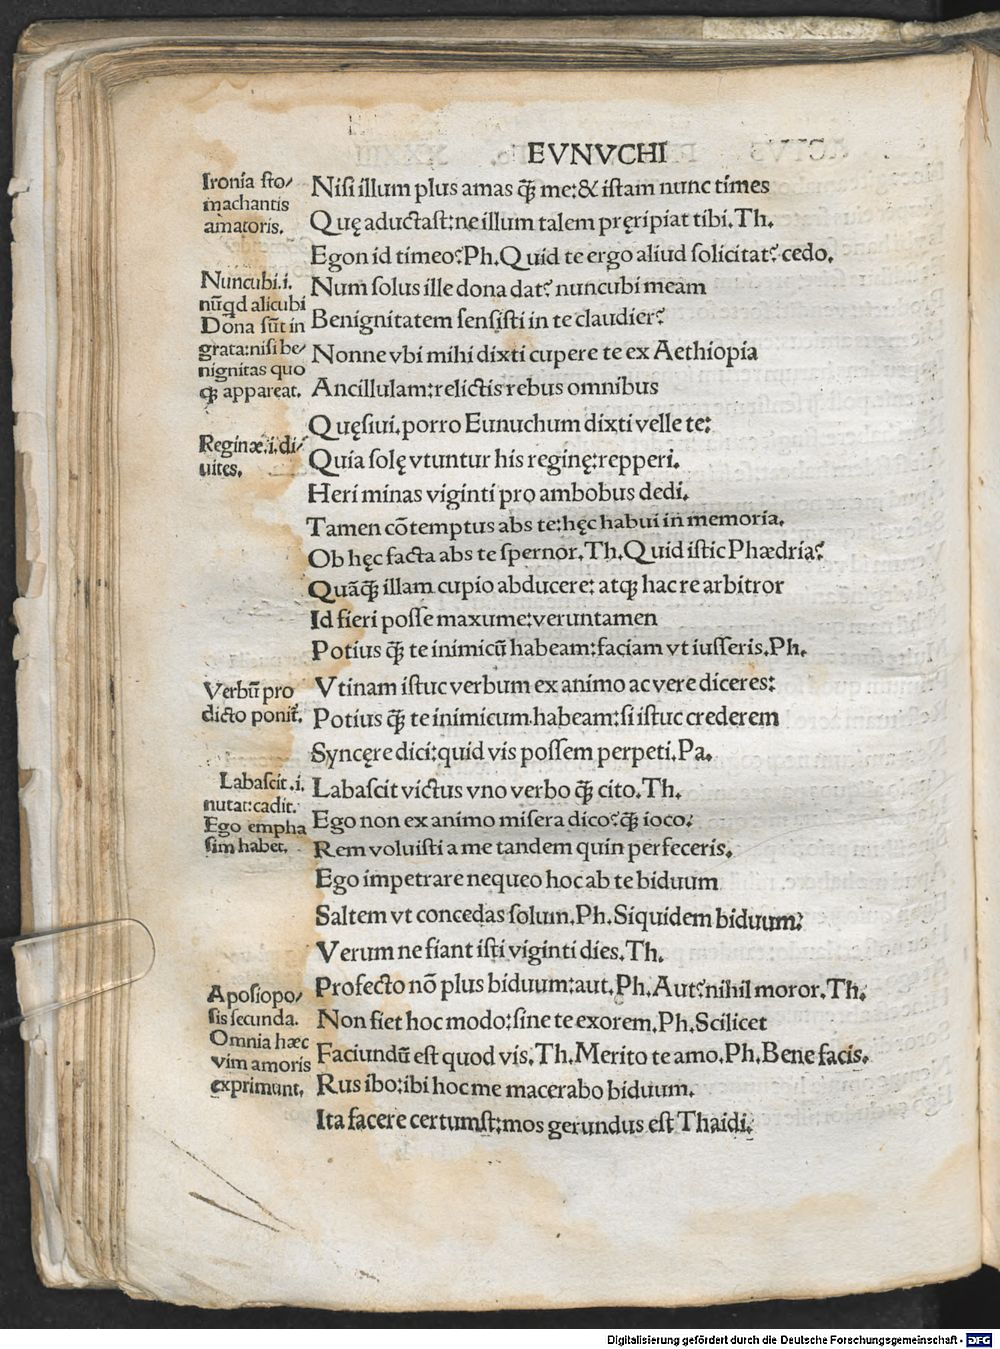 EVNVCHI
Ironia sto/
machantis
amatoris.
Nisi illum plus amas ꝙ̃ me:& istam nunc times
Quę aductast:ne illum talem pręripiat tibi.Th.
Egon id timeo?Ph.Quid te ergo aliud solicitat? cedo.
Nuncubi.i.
nũqd alicubi
Dona sũt in
grata:nisi be/
nignitas quo
ꝗ; appareat.
Num solus ille dona dat? nuncubi meam
Benignitatem sensisti in te claudier?
Nonne vbi mihi dixti cupere te ex Aethiopia
Ancillulam:relictis rebus omnibus
Quęsiui.porro Eunuchum dixti velle te:
Reginæ.i.di/
uites.
Quia solę vtuntur his reginę:repperi.
Heri minas viginti pro ambobus dedi.
Tamen cõtemptus abs te:hęc habui in memoria.
Ob hęc facta abs te spernor.Th.Quid istic Phædria?
Quãꝙ̃ illam cupio abducere: atqꝫ hac re arbitror
Id fieri posse maxume:veruntamen
Potius ꝙ̃ te inimicũ habeam:faciam vt iusseris.Ph.
Verbũ pro
dicto ponit̃.
Vtinam istuc verbum ex animo ac vere diceres:
Potius ꝙ̃ te inimicum.habeam:si istuc crederem
Syncęre dici:quid vis possem perpeti.Pa.
Labascit.i.
nutat:cadit.
Ego empha
sim habet.
Labascit victus vno verbo ꝙ̃ cito.Th.
Ego non ex animo misera dico?ꝙ̃ ioco:
Rem voluisti a me tandem quin perfeceris.
Ego impetrare nequeo hoc ab te biduum
Saltem vt concedas solum.Ph.Siquidem biduum:
Verum ne fiant isti viginti dies.Th.
Aposiopo/
sis secunda.
Omnia hæc
vim amoris
exprimunt.
Profecto nõ plus biduum:aut.Ph.Aut?nihil moror.Th.
Non fiet hoc modo:sine te exorem.Ph.Scilicet
Faciundũ est quod vis.Th.Merito te amo.Ph.Bene facis.
Rus ibo:ibi hoc me macerabo biduum.
Ita facere certumst:mos gerundus est Thaidi.
Digitalisierung gefördert durch die Deutsche Forschungsgemeinschaft - DFG